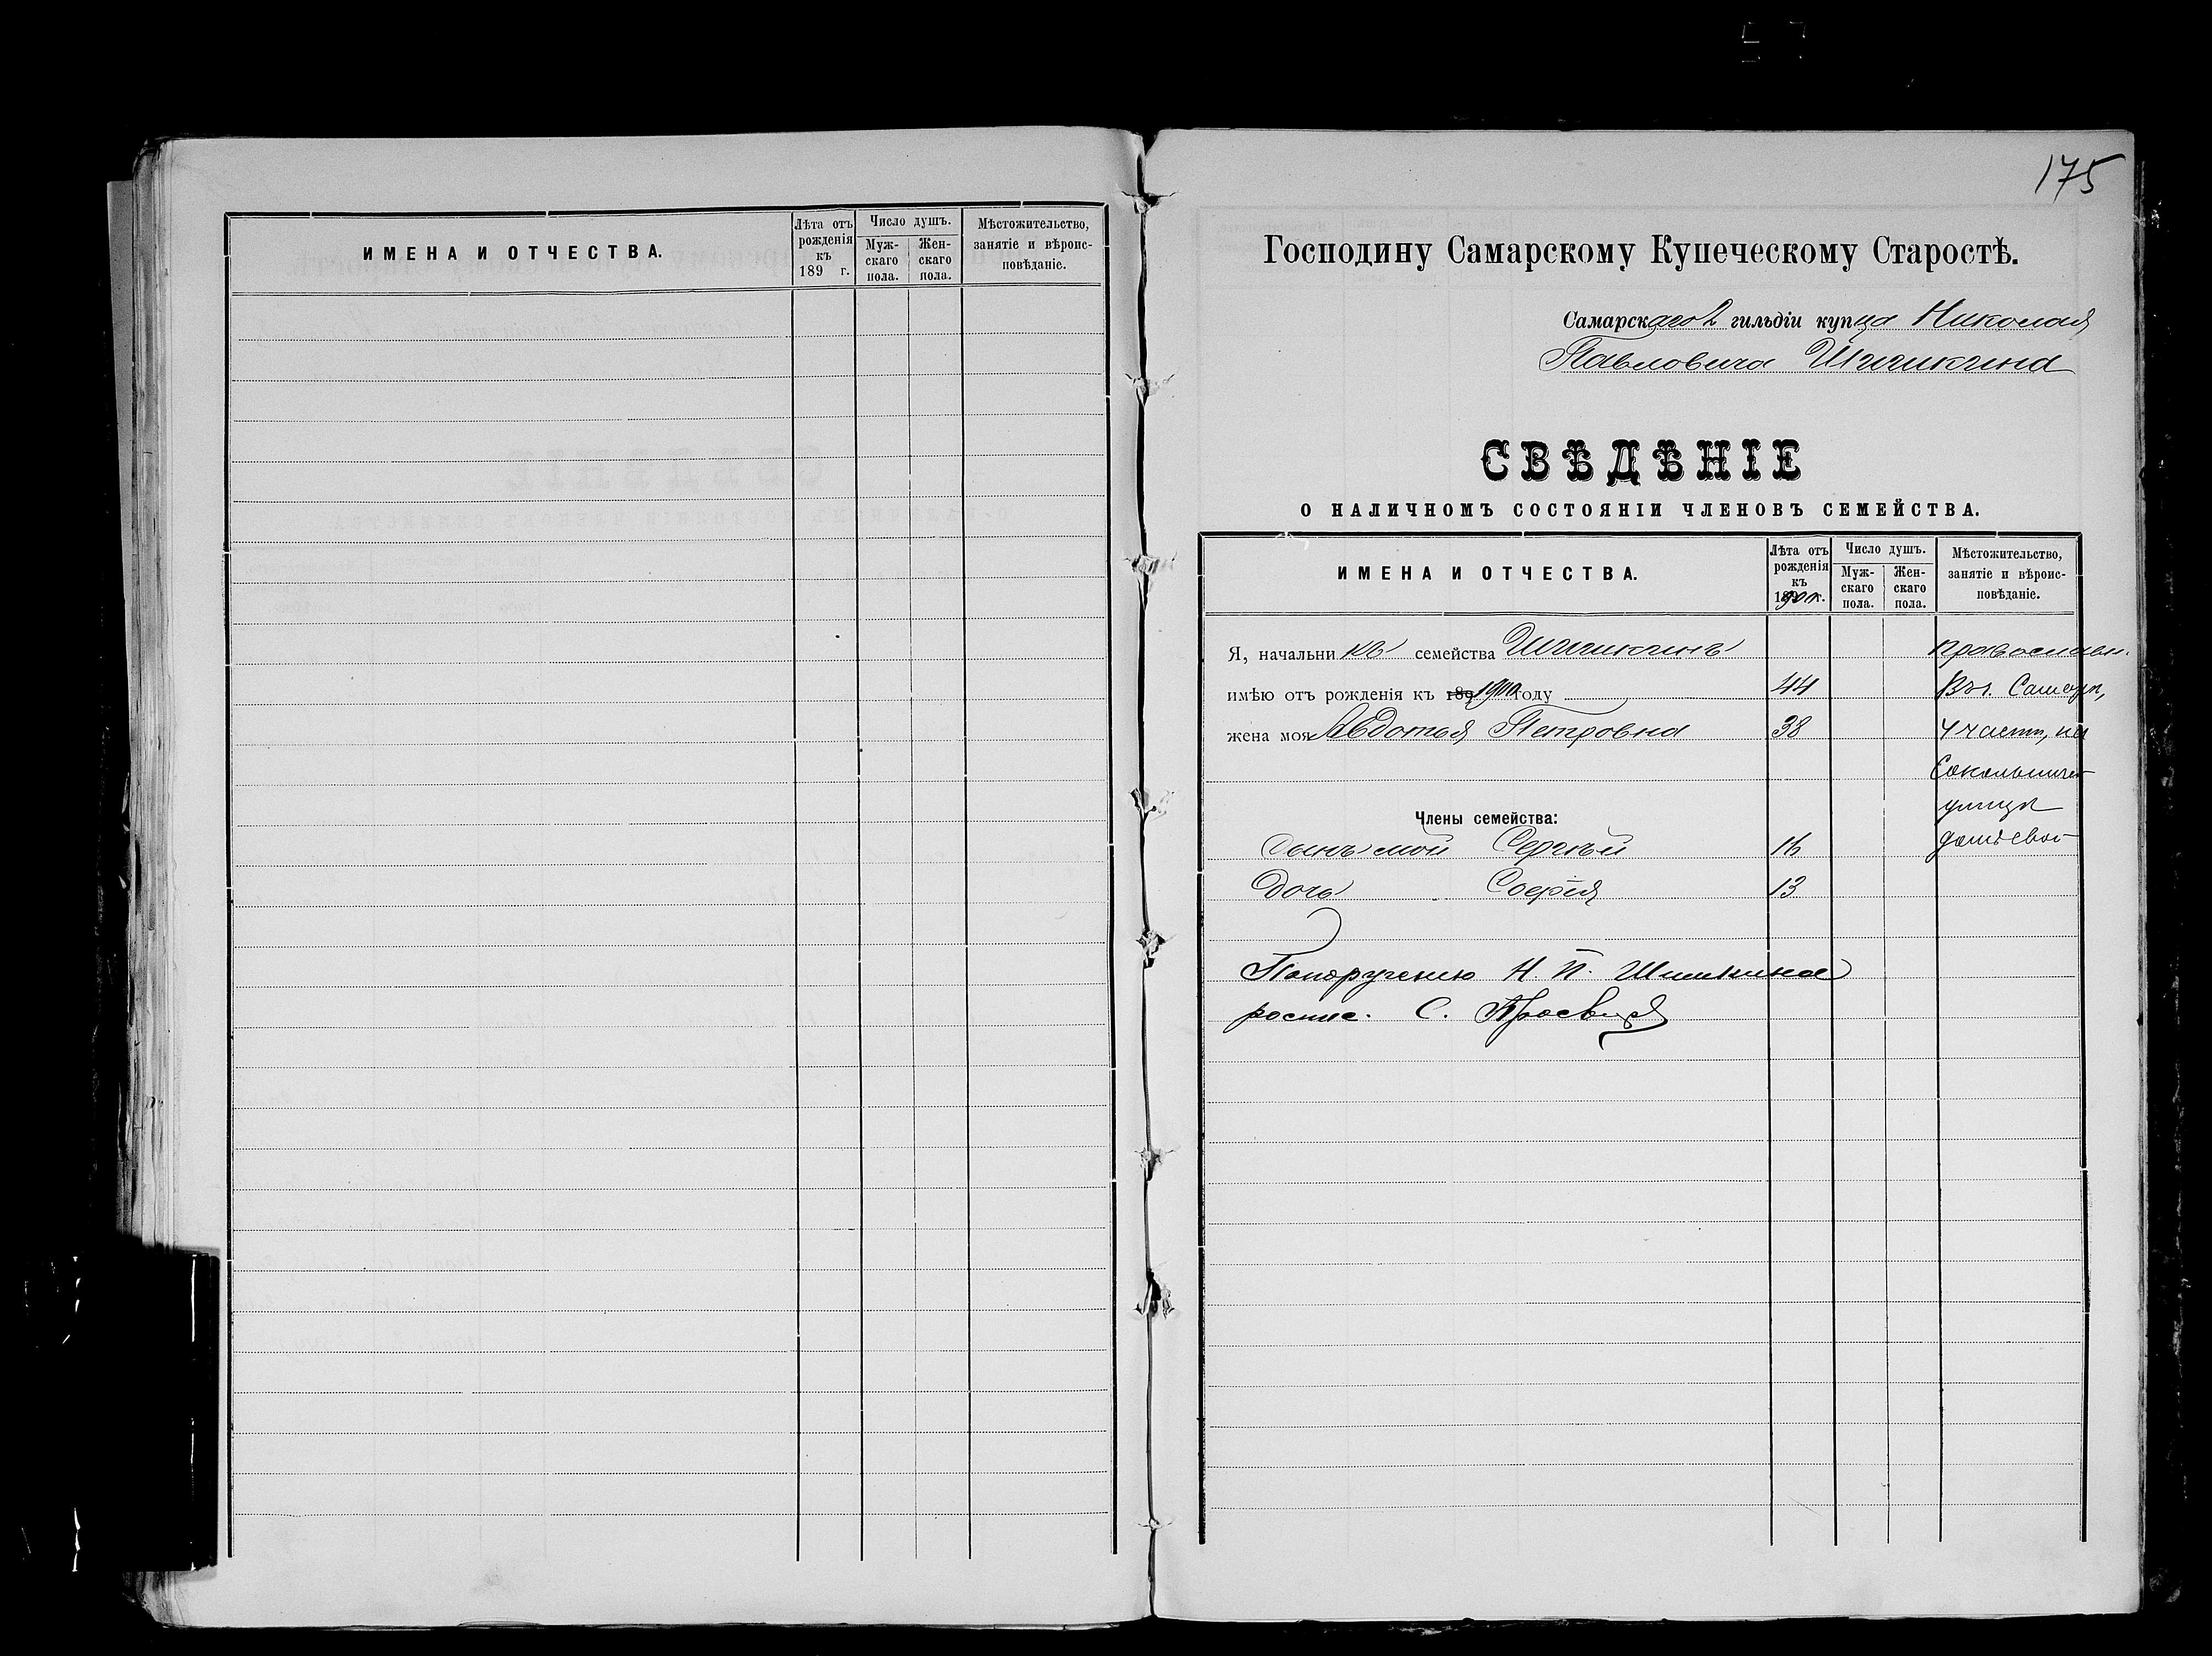 ИМЕНА И ОТЧЕСТВА.
Лѣта отъ рожденія къ 189 г.
Число душъ.
Мужскаго пола.
Женскаго пола.
Мѣстожительство, занятіе и вѣроисповѣданіе.
175
Господину Самарскому Купеческому Старостѣ.
Самарскаго 2 гильдіи купца Николая
Павловича Шишкина
СВѢДѢНІЕ
О НАЛИЧНОМЪ СОСТОЯНІИ ЧЛЕНОВЪ СЕМЕЙСТВА.
ИМЕНА И ОТЧЕСТВА.
Лѣта отъ
рожденія
къ
1900 г.
Число душъ.
Муж-
скаго
пола.
Жен-
скаго
пола.
Мѣстожительство,
занятіе и вѣроис-
повѣданіе.
Я, начальникъ семейства Шишкинъ православн.
имѣю отъ рожденія къ 189 1900 году 44 Въ г. Самарѣ,
жена моя Авдотья Петровна 38 4 части, на
улицѣ
Члены семейства:
сынъ мой Сергѣй 16
дочь Софія 13
По порученію Н. П. Шишкина
роспис. С.